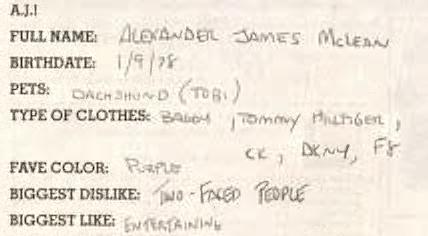 A.J.!
FULL NAME: ALEXANDER JAMES McLEAN
BIRTHDATE: 1/9/78
PETS: DACHSHUND (TOBI)
TYPE OF CLOTHES: BAGGY, TOMMY HILFIGER,
CK, DKNY, F8
FAVE COLOR: PURPLE
BIGGEST DISLIKE: TWO-FACED PEOPLE
BIGGEST LIKE: ENTERTAINING